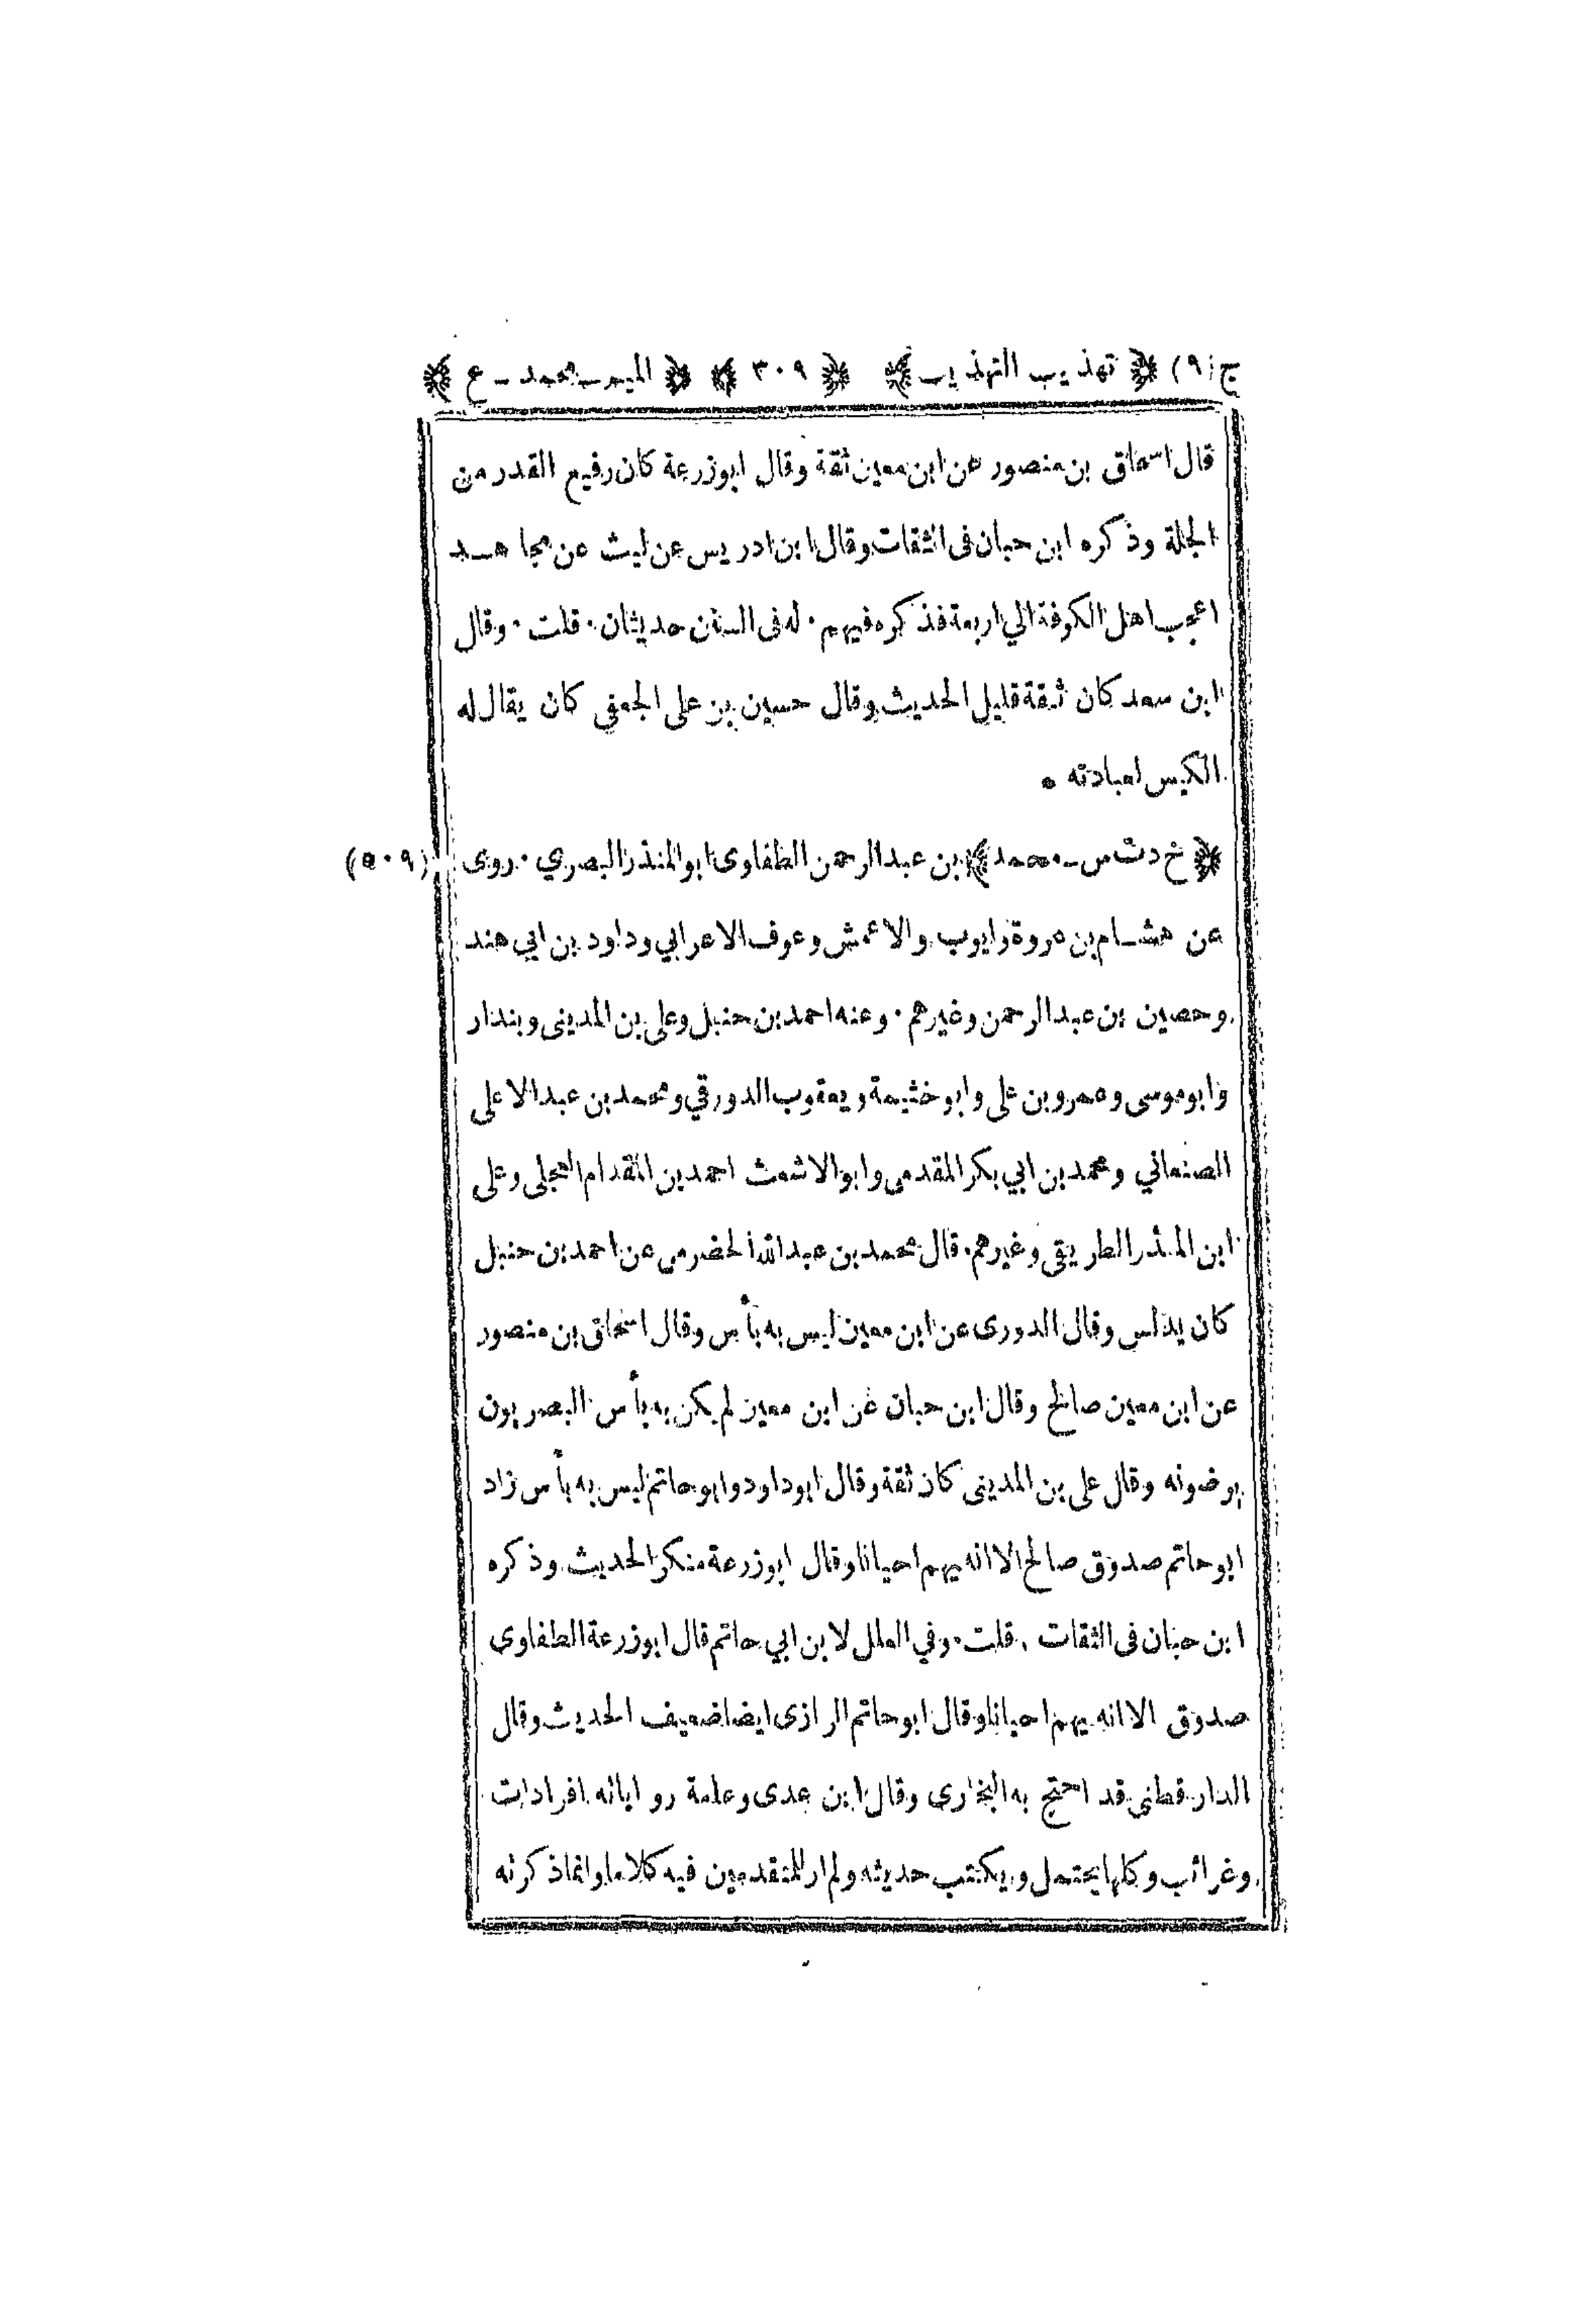 ج (٩) ﴿ تهذيب التهذيب ﴾ ﴿ ٣٠٩ ﴾ ﴿ الميم ـ محمد ـ ع ﴾
قال اسحاق بن منصور عن ابن معين ثقة وقال ابوزرعة كان رفيع القدر من
الجلة وذكره ابن حبان فى الثقات وقال ابن ادريس عن ليث عن مجاهـد
اعجب اهل الكوفة الي اربعة فذكره فيهم · له فى السنن حديثان · قلت · وقال
ابن سعد كان ثقة قليل الحديث وقال حسين بن على الجعفي كان يقال له
الكيس لعبادته ●
﴿ خ د ت س ـ محمد ﴾ بن عبد الرحمن الطفاوى ابو المنذر البصري · روى (٥٠٩)
عن هشـام بن عروة وايوب والاعمش وعوف الاعرابي وداود بن ابي هند
وحصين بن عبد الرحمن وغيرهم · وعنه احمد بن حنبل وعلى بن المدينى وبندار
وابوموسى وعمرو بن على وابو خثيمة ويعقوب الدورقي ومحمد بن عبد الاعلى
الصنعاني ومحمد بن ابي بكر المقدمى وابو الاشعث احمد بن المقدام العجلى وعلى
ابن المنذر الطريقى وغيرهم · قال محمد بن عبد الله الحضرمى عن احمد بن حنبل
كان يدلس وقال الدورى عن ابن معين ليس به بأس وقال اسحاق بن منصور
عن ابن معين صالح وقال ابن حبان عن ابن معين لم يكن به بأس البصريون
يرضونه وقال على بن المدينى كان ثقة وقال ابوداود وابو حاتم ليس به بأس زاد
ابو حاتم صدوق صالح الا انه يهم احيانا وقال ابوزرعة منكر الحديث وذكره
ابن حبان فى الثقات · قلت · وفي العلل لا بن ابي حاتم قال ابوزرعة الطفاوى
صدوق الا انه يهم احيانا وقال ابو حاتم الرازى ايضا ضعيف الحديث وقال
الدار قطنى قد احتج به البخارى وقال ابن عدى وعامة رواياته افرادات
وغرائب وكلها يحتمل ويكتب حديثه ولم ار للمتقدمين فيه كلاما وانما ذكرته